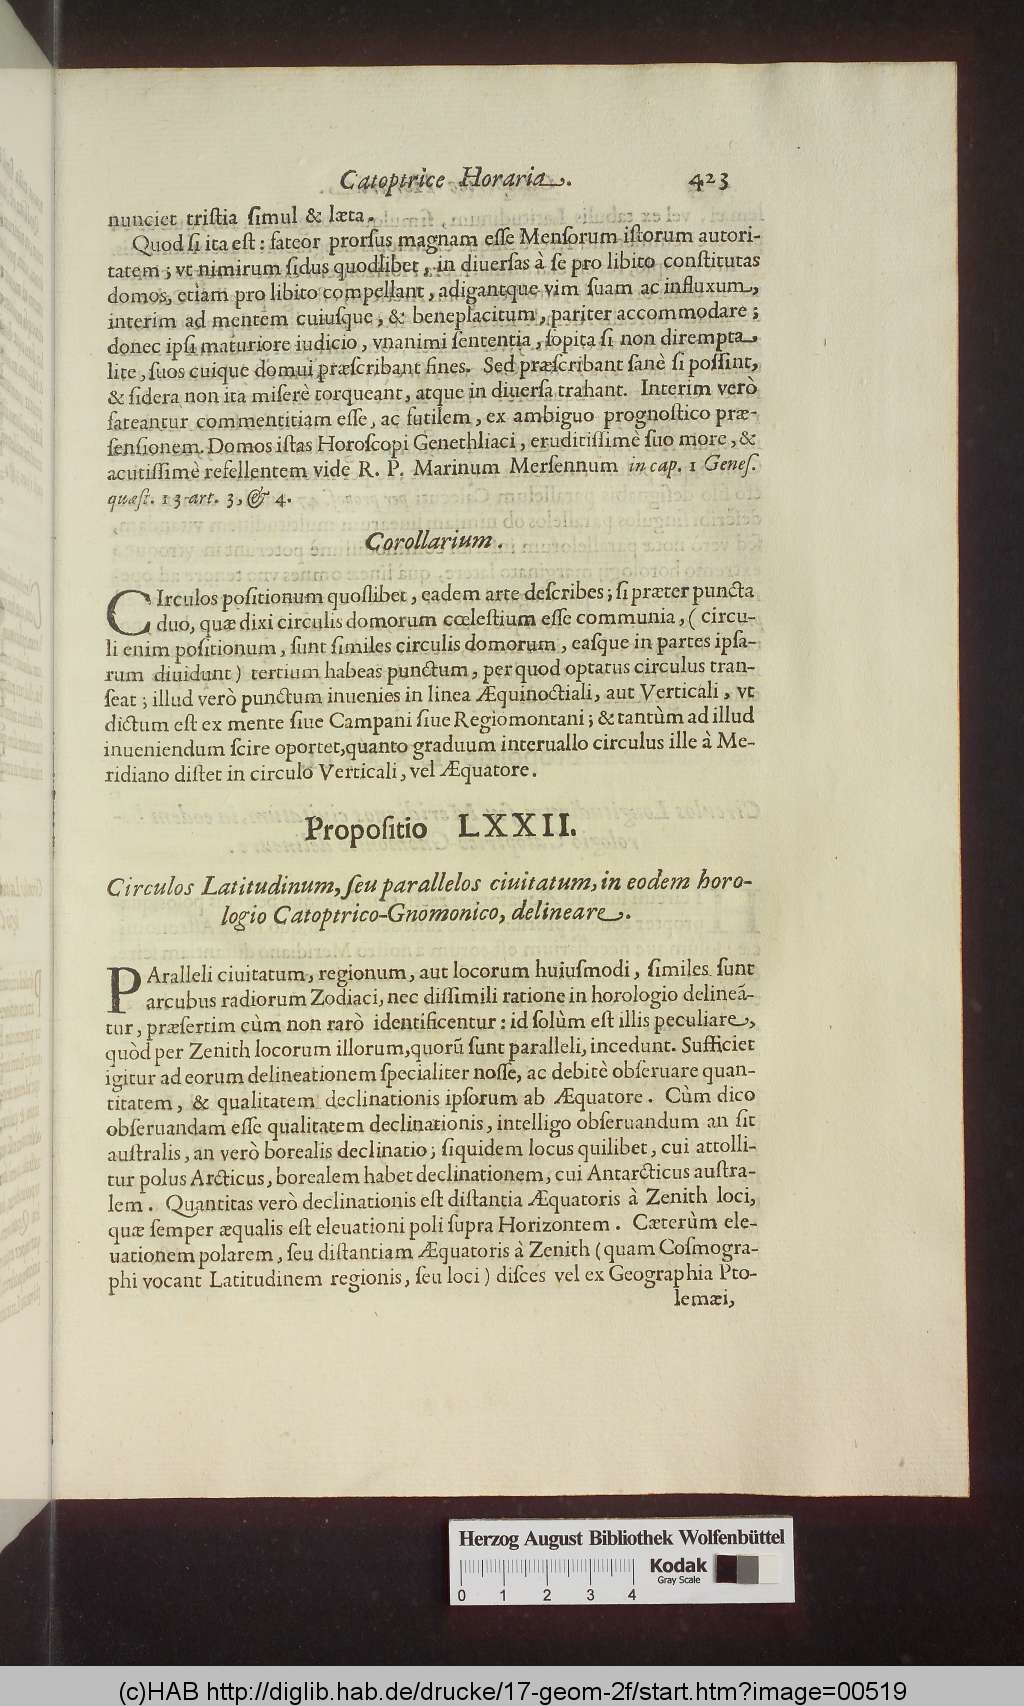 Catoptrice Horaria. 423
nunciet triſtia ſimul & læta.
Quod ſi ita eſt: fateor prorſus magnam eſſe Menſorum iſtorum autori-
tatem; vt nimirum ſidus quodlibet, in diuerſas à ſe pro libito conſtitutas
domos, etiam pro libito compellant, adigantque vim ſuam ac influxum,
interim ad mentem cuiuſque, & beneplacitum, pariter accommodare;
donec ipſi maturiore iudicio, vnanimi ſententia, ſopita ſi non dirempta
lite, ſuos cuique domui præſcribant fines. Sed præſcribant ſanè ſi poſſint,
& ſidera non ita miſerè torqueant, atque in diuerſa trahant. Interim verò
fateantur commentitiam eſſe, ac futilem, ex ambiguo prognoſtico præ-
ſenſionem. Domos iſtas Horoſcopi Genethliaci, eruditiſſimè ſuo more, &
acutiſſimè refellentem vide R. P. Marinum Merſennum in cap. 1 Geneſ.
quæſt. 13 art. 3, & 4.
Corollarium.
CIrculos poſitionum quoſlibet, eadem arte deſcribes; ſi præter puncta
duo, quæ dixi circulis domorum cœleſtium eſſe communia, (circu-
li enim poſitionum, ſunt ſimiles circulis domorum, eaſque in partes ipſa-
rum diuidunt) tertium habeas punctum, per quod optatus circulus tran-
ſeat; illud verò punctum inuenies in linea Æquinoctiali, aut Verticali, vt
dictum eſt ex mente ſiue Campani ſiue Regiomontani; & tantùm ad illud
inueniendum ſcire oportet, quanto graduum interuallo circulus ille à Me-
ridiano diſtet in circulo Verticali, vel Æquatore.
Propoſitio LXXII.
Circulos Latitudinum, ſeu parallelos ciuitatum, in eodem horo-
logio Catoptrico-Gnomonico, delineare.
PAralleli ciuitatum, regionum, aut locorum huiuſmodi, ſimiles ſunt
arcubus radiorum Zodiaci, nec diſſimili ratione in horologio delineã-
tur, præſertim cùm non rarò identificentur: id ſolùm eſt illis peculiare,
quòd per Zenith locorum illorum, quorũ ſunt paralleli, incedunt. Sufficiet
igitur ad eorum delineationem ſpecialiter noſſe, ac debitè obſeruare quan-
titatem, & qualitatem declinationis ipſorum ab Æquatore. Cùm dico
obſeruandam eſſe qualitatem declinationis, intelligo obſeruandum an ſit
auſtralis, an verò borealis declinatio; ſiquidem locus quilibet, cui attolli-
tur polus Arcticus, borealem habet declinationem, cui Antarcticus auſtra-
lem. Quantitas verò declinationis eſt diſtantia Æquatoris à Zenith loci,
quæ ſemper æqualis eſt eleuationi poli ſupra Horizontem. Cæterùm ele-
uationem polarem, ſeu diſtantiam Æquatoris à Zenith (quam Coſmogra-
phi vocant Latitudinem regionis, ſeu loci) diſces vel ex Geographia Pto-
lemæi,
Herzog August Bibliothek Wolfenbüttel
Kodak
Gray Scale
0 1 2 3 4
(c)HAB http://diglib.hab.de/drucke/17-geom-2f/start.htm?image=00519